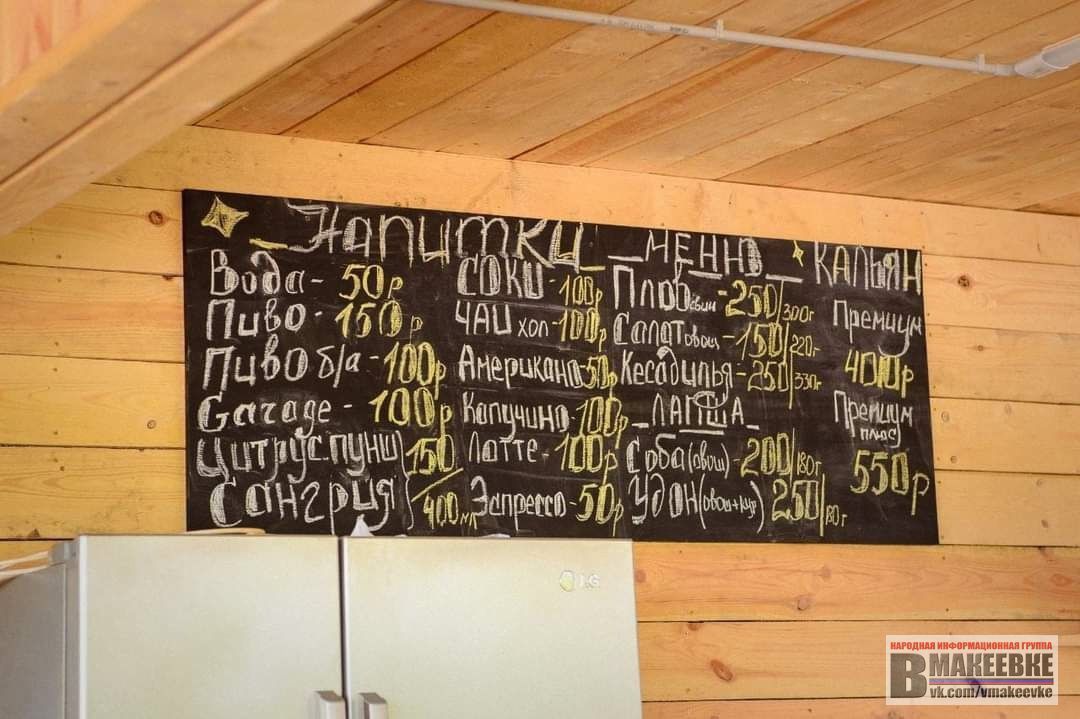 Напитки
Вода - 50р
Пиво - 150р
Пиво б/а - 100р
Garage - 100р
Цитрус.пунш
Сангрия
150/400мл
Соки - 100р
Чай хол - 100р
Американо - 50р
Капучино - 100р
Латте - 100р
Эапрессо - 50р
_Меню_
Плов свин - 250/300г
Салат овощ - 150/220г
Кесадилья - 250/330г
_Лапша_
Соба(овощ) - 200/180г
Удон(овощ+кур) 250/180г
Кальян
Премиум
400р
Премиум
плюс
550р
LG
НАРОДНАЯ ИНФОРМАЦИОННАЯ ГРУППА
В МАКЕЕВКЕ
vk.com/vmakeevke